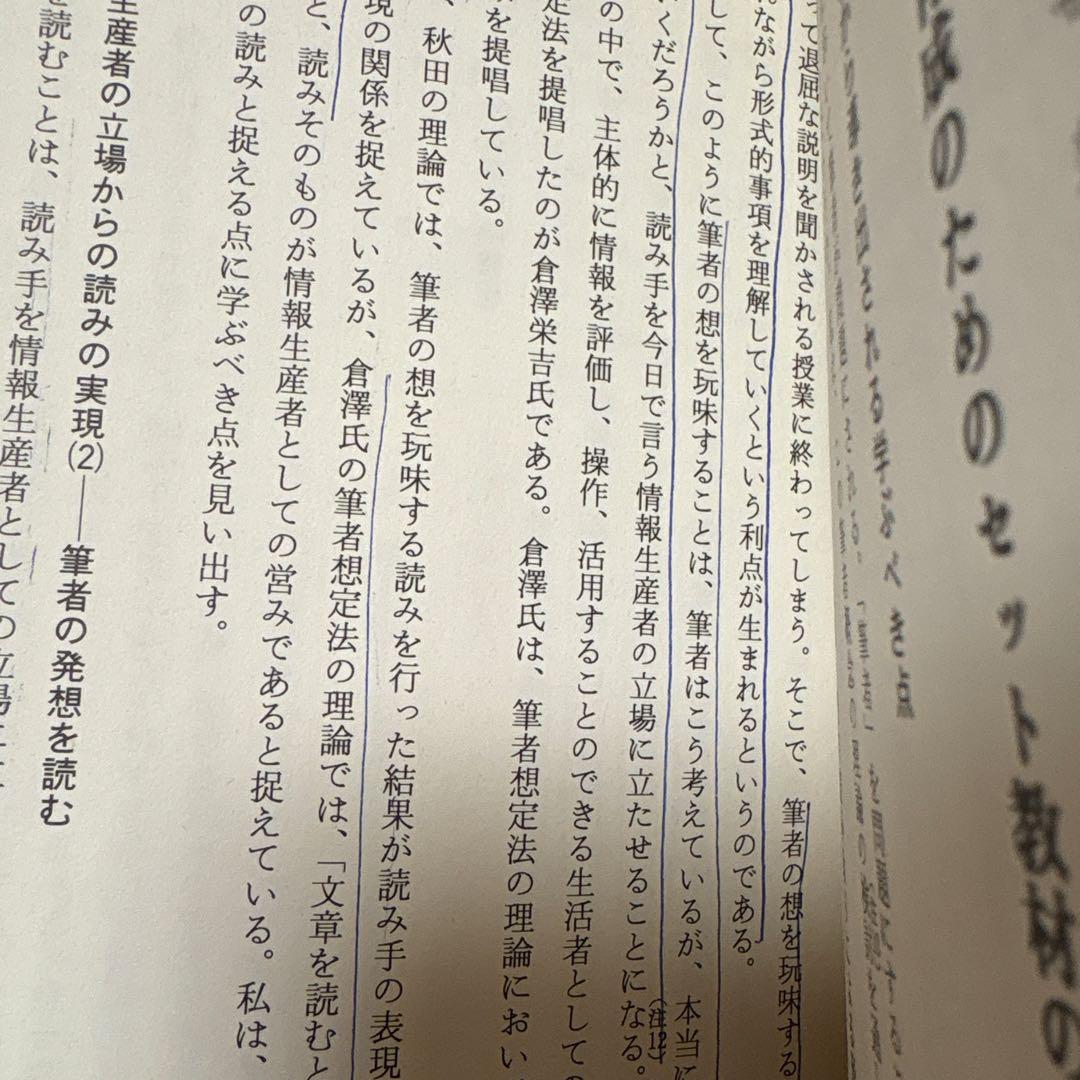 成のためのセット教材の
き出される学ぶべき点
って退屈な説明を聞かされる授業に終わってしまう。そこで、筆者の想を玩味する
れながら形式的事項を理解していくという利点が生まれるというのである。
して、このように筆者の想を玩味することは、筆者はこう考えているが、本当に
くだろうかと、読み手を今日で言う情報生産者の立場に立たせることになる。
(注12)
の中で、主体的に情報を評価し、操作、活用することのできる生活者としての
定法を提唱したのが倉澤栄吉氏である。倉澤氏は、筆者想定法の理論におい
を提唱している。
、秋田の理論では、筆者の想を玩味する読みを行った結果が読み手の表現
現の関係を捉えているが、倉澤氏の筆者想定法の理論では、「文章を読むと
と、読みそのものが情報生産者としての営みであると捉えている。私は、
の読みと捉える点に学ぶべき点を見い出す。
生産者の立場からの読みの実現(2)——筆者の発想を読む
を読むことは、読み手を情報生産者としての立場に